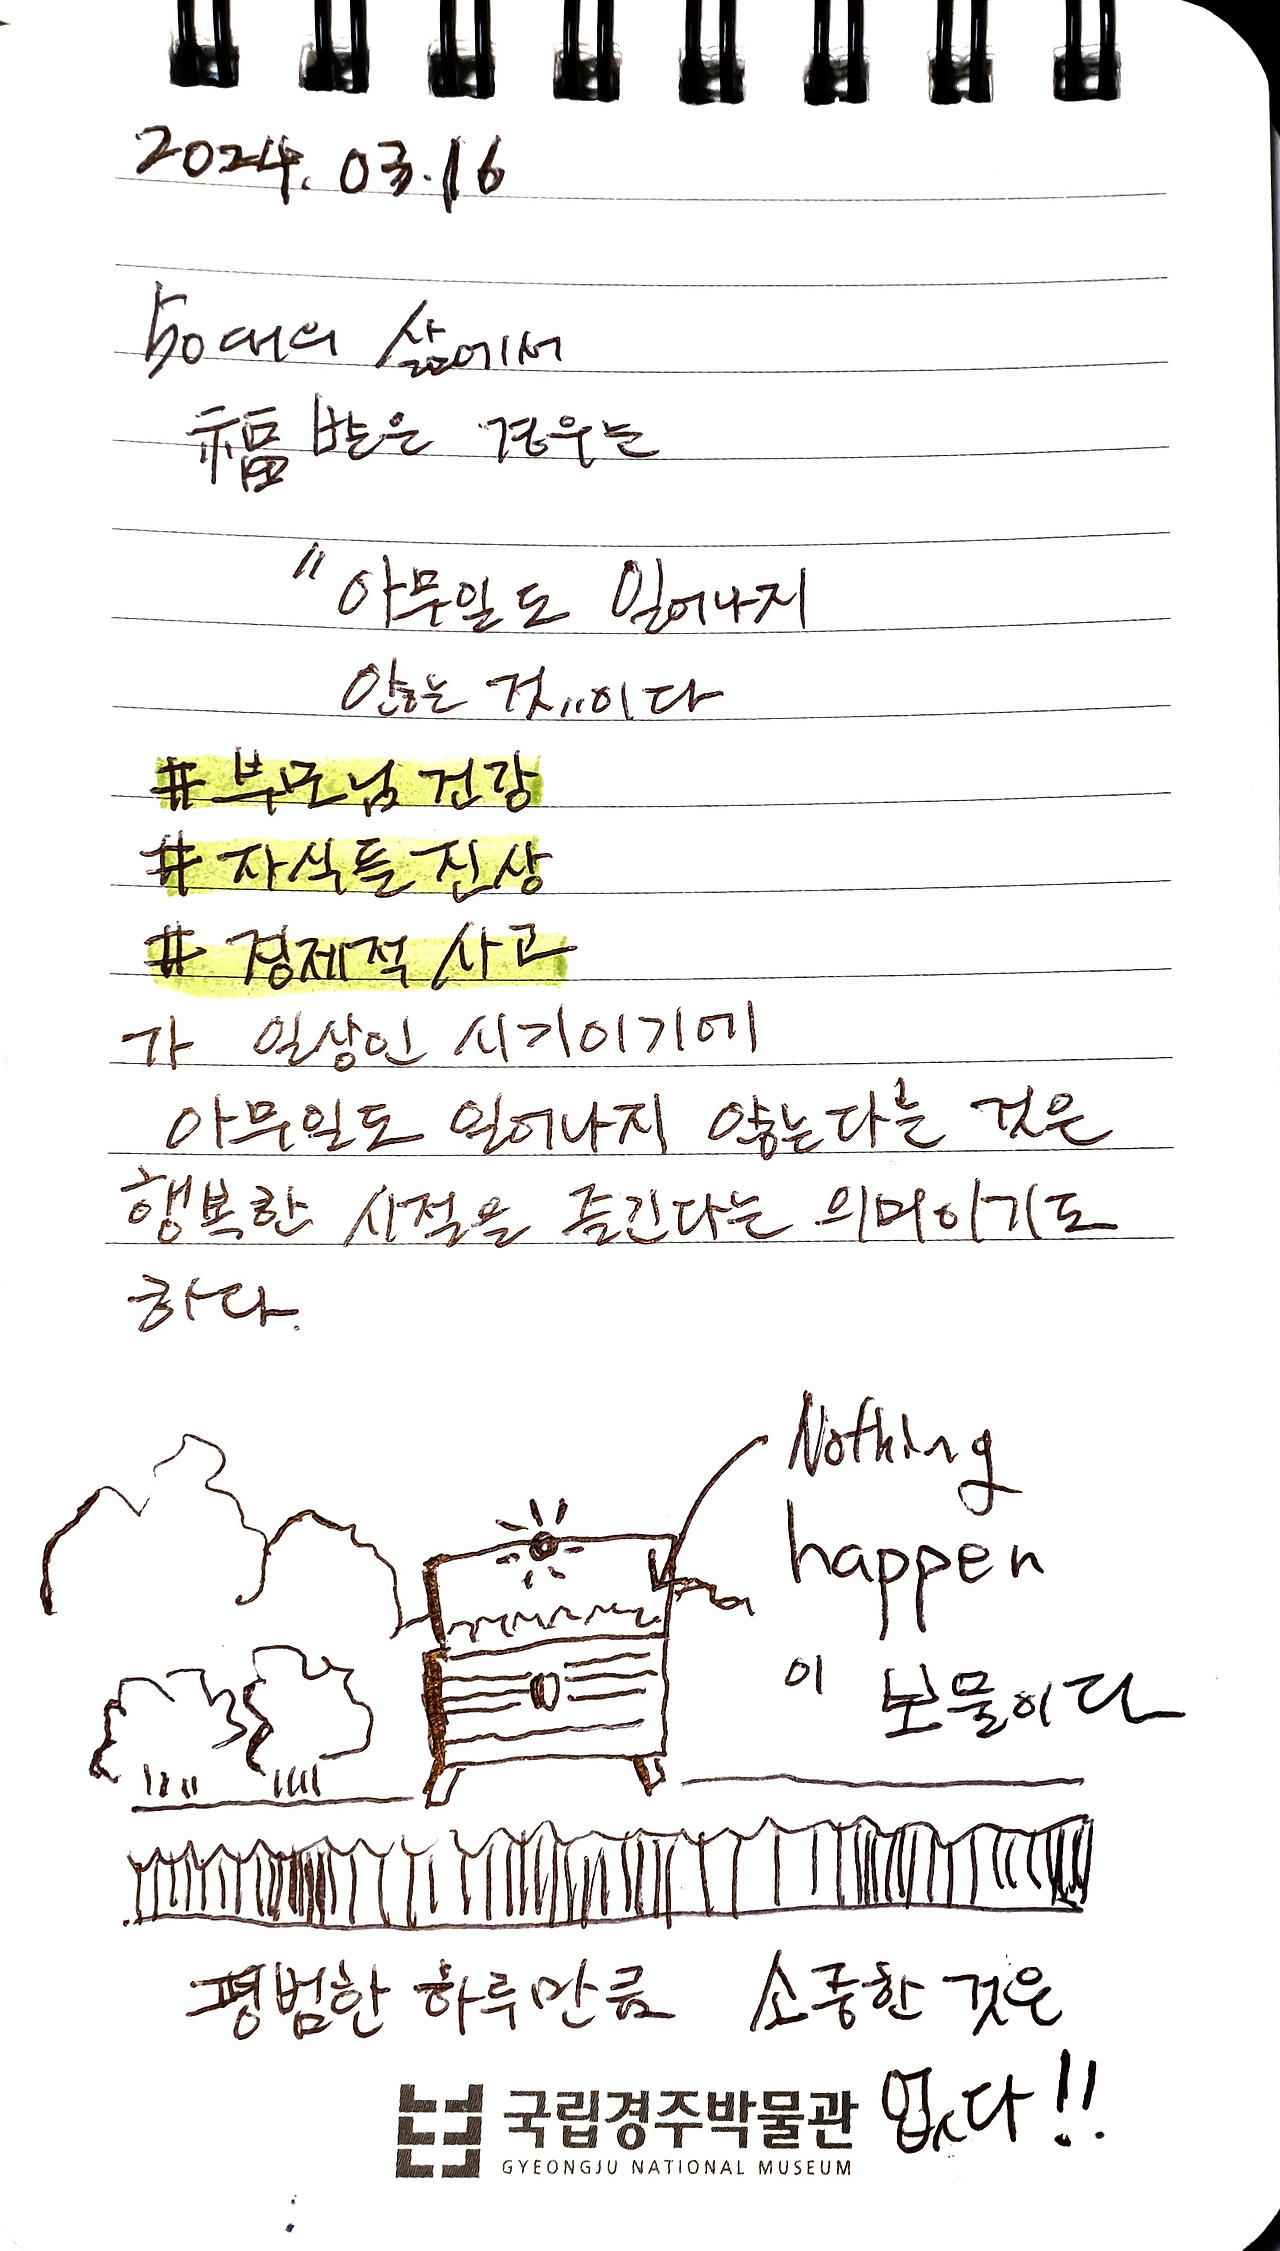 2024. 03. 16
50대의 삶에서
福 받은 경우는
"아무일도 일어나지
않는 것"이다
# 부모님 건강
# 자식들 진상
# 경제적 사고
가 일상인 시기이기에
아무일도 일어나지 않는다는 것은
행복한 시절을 즐긴다는 의미이기도
하다.
Nothing
happen
이 보물이다
평범한 하루만큼 소중한 것은
없다!!
국립경주박물관
GYEONGJU NATIONAL MUSEUM